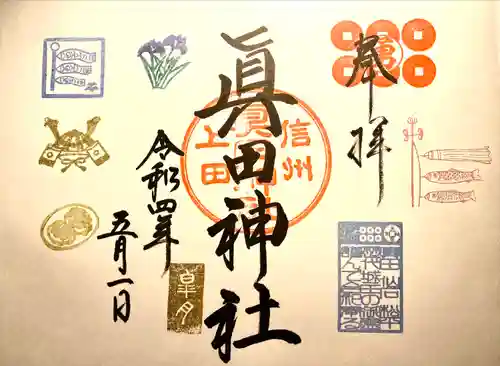 奉拝
眞田神社
信州
上田
眞田神社
令和四年
五月一日
皐月